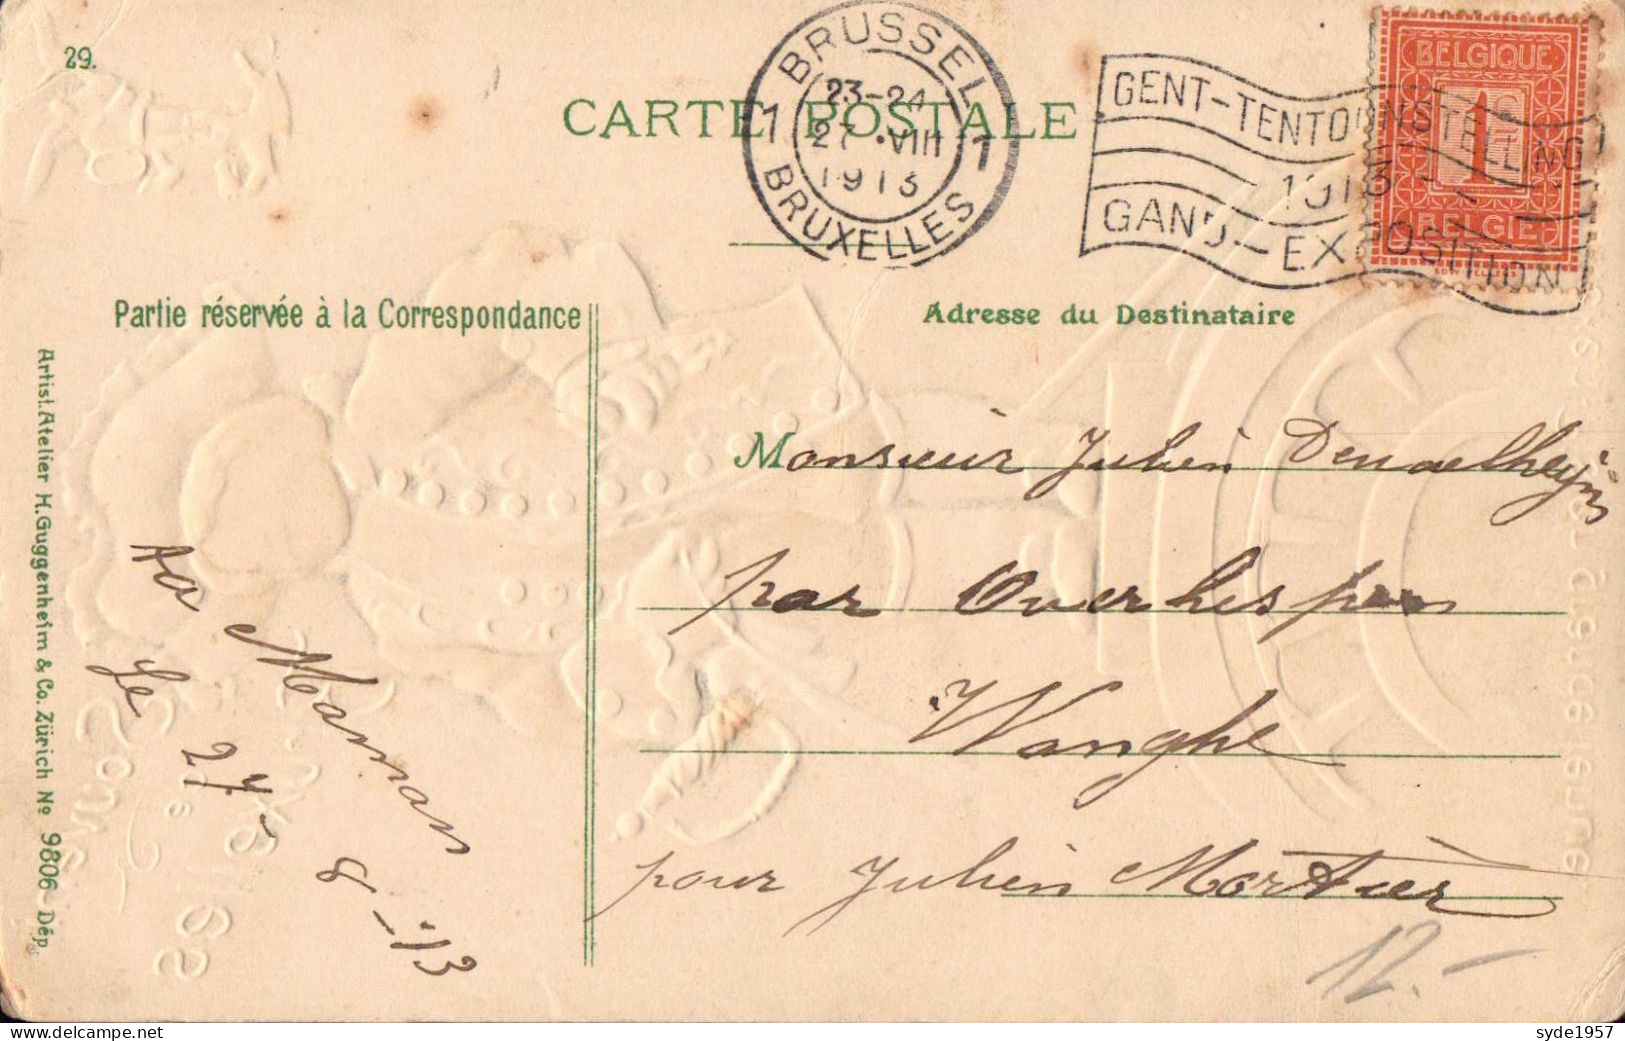 29.
CARTE POSTALE
BRUSSEL
1 1
23-24
27 • VIII
1913
BRUXELLES
GENT-TENTOONSTELLING
1913
GAND-EXPOSITION
BELGIQUE
1
BELGIE
Partie réservée à la Correspondance
Adresse du Destinataire
Monsieur Julien
par Overhespen
Wanghe
pour Julien Mortier
12.-
Ta Maman
Le 27-8-13
Artist. Atelier H. Guggenheim & Co. Zürich No 9806 Dép.
syde1957